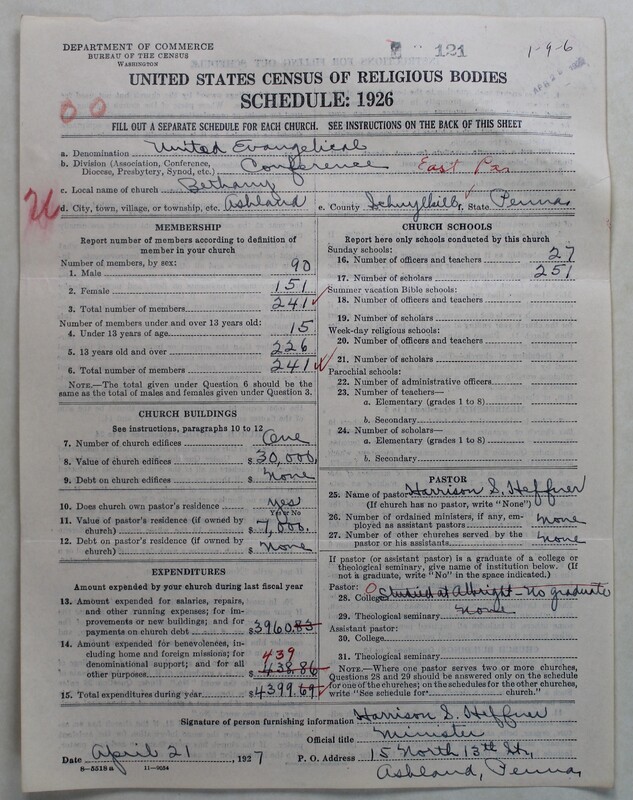 DEPARTMENT OF COMMERCE
BUREAU OF THE CENSUS
WASHINGTON
121
1-9-6
UNITED STATES CENSUS OF RELIGIOUS BODIES
SCHEDULE: 1926
00
FILL OUT A SEPARATE SCHEDULE FOR EACH CHURCH. SEE INSTRUCTIONS ON THE BACK OF THIS SHEET
a. Denomination United Evangelical
b. Division (Association, Conference, Diocese, Presbytery, Synod, etc.) Conference East Pa.
c. Local name of church Bethany
d. City, town, village, or township, etc. Ashland e. County Schuylkill f. State Penna.
MEMBERSHIP
Report number of members according to definition of
member in your church
Number of members, by sex:
1. Male 90
2. Female 151
3. Total number of members 241
Number of members under and over 13 years old:
4. Under 13 years of age 15
5. 13 years old and over 226
6. Total number of members 241
NOTE.—The total given under Question 6 should be
the same as the total of males and females given under Question 3.
CHURCH BUILDINGS
See instructions, paragraphs 10 to 12
7. Number of church edifices One
8. Value of church edifices $ 30,000
9. Debt on church edifices $ None
10. Does church own pastor's residence yes
Yes or No
11. Value of pastor's residence (if owned by
church) $ 7,000.
12. Debt on pastor's residence (if owned by
church) $ None
EXPENDITURES
Amount expended by your church during last fiscal year
13. Amount expended for salaries, repairs,
and other running expenses; for im-
provements or new buildings; and for
payments on church debt $ 3960.83
14. Amount expended for benevolences, in-
cluding home and foreign missions; for
denominational support; and for all
other purposes $ 438.86
439
15. Total expenditures during year $ 4399.69
CHURCH SCHOOLS
Report here only schools conducted by this church
Sunday schools:
16. Number of officers and teachers 27
17. Number of scholars 251
Summer vacation Bible schools:
18. Number of officers and teachers
19. Number of scholars
Week-day religious schools:
20. Number of officers and teachers
21. Number of scholars
Parochial schools:
22. Number of administrative officers
23. Number of teachers—
a. Elementary (grades 1 to 8)
b. Secondary
24. Number of scholars—
a. Elementary (grades 1 to 8)
b. Secondary
PASTOR
25. Name of pastor Harrison S. Heffner
(If church has no pastor, write "None")
26. Number of ordained ministers, if any, em-
ployed as assistant pastors none
27. Number of other churches served by the
pastor or his assistants none
If pastor (or assistant pastor) is a graduate of a college or
theological seminary, give name of institution below. (If
not a graduate, write "No" in the space indicated.)
Pastor: 0
28. College Studied at Albright - no graduate
29. Theological seminary none
Assistant pastor:
30. College
31. Theological seminary
NOTE.—Where one pastor serves two or more churches,
Questions 28 and 29 should be answered only on the schedule
for one of the churches; on the schedules for the other churches,
write "See schedule for church."
Signature of person furnishing information Harrison S. Heffner
Official title Minister
Date April 21, 1927 P. O. Address 15 North 13th St.,
8-5518 a 11-9254 Ashland, Penna.